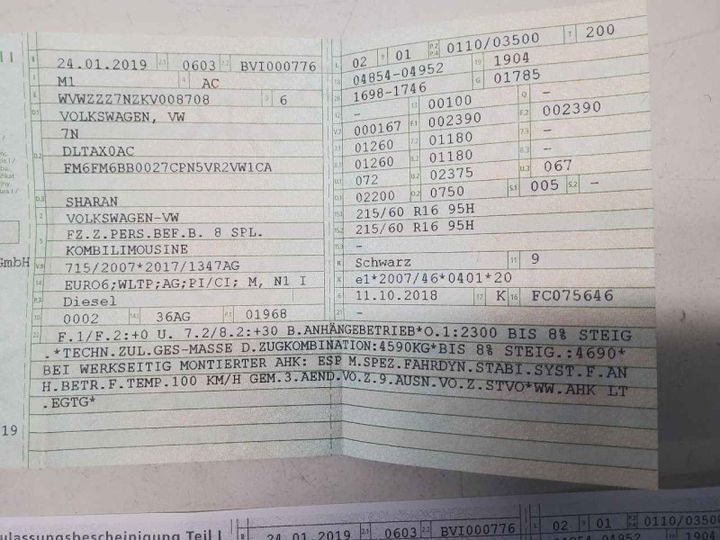 24.01.2019 2.1 0603 2.2 BVI000776
M1 4 AC
WVWZZZ7NZKV008708 3 6
VOLKSWAGEN, VW
7N
DLTAX0AC
FM6FM6BB0027CPN5VR2VW1CA
SHARAN
VOLKSWAGEN-VW
FZ.Z.PERS.BEF.B. 8 SPL.
KOMBILIMOUSINE
GmbH
715/2007*2017/1347AG
EURO6;WLTP;AG;PI/CI; M, N1 I
Diesel
0002 36AG P.1 01968
L 02 9 01 P.2 P.4 0110/03500 T 200
04854-04952 19 1904
1698-1746 G 01785
- 13 00100 Q -
000167 F.1 002390 F.2 002390
01260 01180 -
01260 01180 -
072 U.2 02375 U.3 067
02200 O.2 0750 S.1 005 S.2 -
215/60 R16 95H
215/60 R16 95H
-
R Schwarz 11 9
K e1*2007/46*0401*20
6 11.10.2018 17 K 16 FC075646
21 -
22 F.1/F.2:+0 U. 7.2/8.2:+30 B.ANHÄNGEBETRIEB*O.1:2300 BIS 8% STEIG
.*TECHN.ZUL.GES-MASSE D.ZUGKOMBINATION:4590KG*BIS 8% STEIG.:4690*
BEI WERKSEITIG MONTIERTER AHK: ESP M.SPEZ.FAHRDYN.STABI.SYST.F.AN
H.BETR.F.TEMP.100 KM/H GEM.3.AEND.VO.Z.9.AUSN.VO.Z.STVO*WW.AHK LT
.EGTG*
19
ulassungsbescheinigung Teil I 24.01.2019 2.1 0603 2.2 BVI000776 L 02 9 01 0110/03500
1904